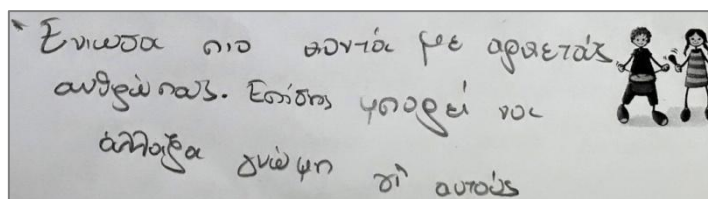 Ένιωσα πιο κοντά με αρκετούς
ανθρώπους. Επίσης μπορεί να
άλλαξα γνώμη γι' αυτούς